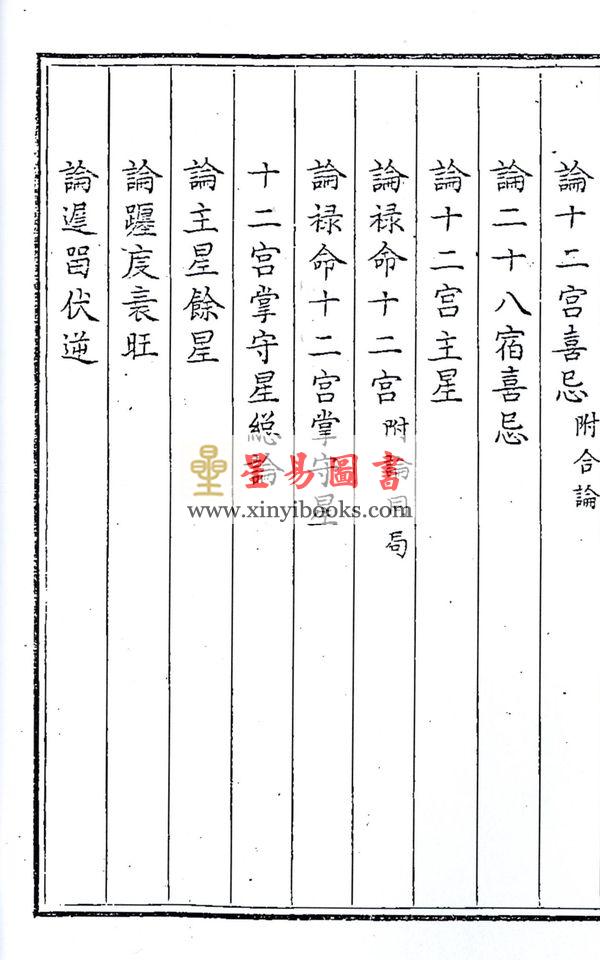 論十二宮喜忌 附合論
論二十八宿喜忌
論十二宮主星
論祿命十二宮 附論 局
論祿命十二宮掌守星
十二宮掌守星總論
論主星餘星
論躔度衰旺
論遲畱伏逆
星易圖書
www.xinyibooks.com